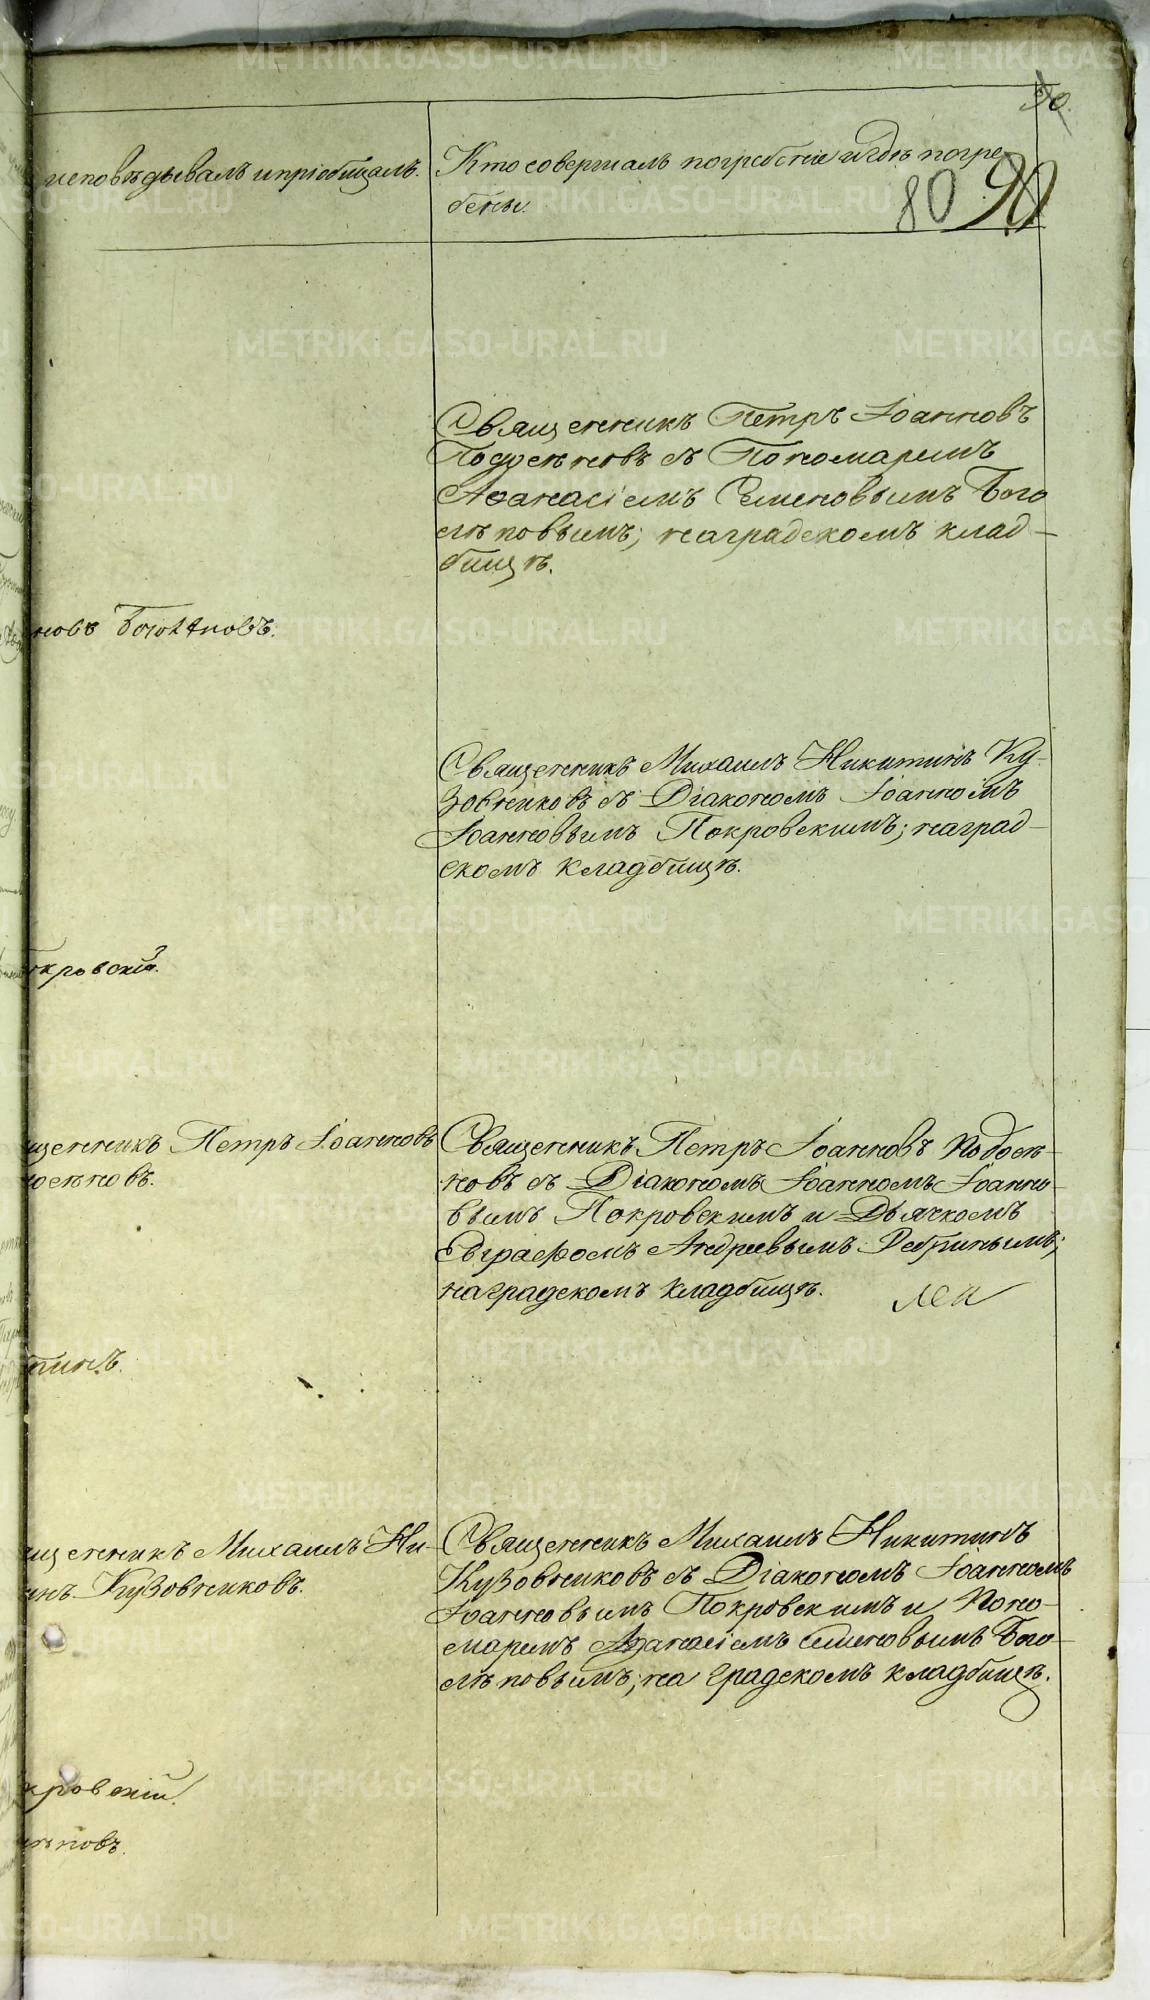 90.
исповѣдывалъ и пріобщалъ.
Кто совершалъ погребеніе и гдѣ погре
бены.
80 90
Священникъ Петръ Іоанновъ
Подосѣновъ съ Пономаремъ
Аѳанасіемъ Семеновымъ Бого
лѣповымъ; на градскомъ клад-
бищѣ.
новъ Боголѣповъ.
Священникъ Михаилъ Никитинъ Ку-
зовниковъ съ Діакономъ Іоанномъ
Іоанновымъ Покровскимъ; на град-
скомъ кладбищѣ.
кровскій.
щенникъ Петръ Іоанновъ
осѣновъ.
Священникъ Петръ Іоанновъ Подосѣ-
новъ съ Діакономъ Іоанномъ Іоанно-
вымъ Покровскимъ и Дьячкомъ
Евграфомъ Андреевымъ Дебринымъ;
на градскомъ кладбищѣ.
щенникъ Михаилъ Ни-
инъ Кузовниковъ.
Священникъ Михаилъ Никитинъ
Кузовниковъ съ Діакономъ Іоанномъ
Іоанновымъ Покровскимъ и Поно-
маремъ Аѳанасіемъ Семеновымъ Бого-
лѣповымъ; на градскомъ кладбищѣ.
кровскій.
лѣповъ.
METRIKI.GASO-URAL.RU